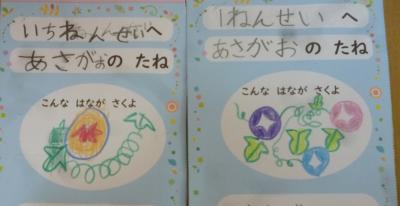 いちねんせいへ
あさがおの たね
こんな はなが さくよ
1ねんせい へ
あさがお の たね
こんな はなが さくよ